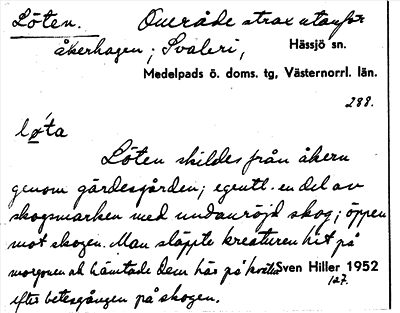 Löten. Område strax utanför
åkerhagen; Svaleri, Hässjö sn.
Medelpads ö. doms. tg, Västernorrl. län.
288.
lø'ta
Löten skildes från åkern
genom gärdesgården; egentl. en del av
skogsmarken med undanröjd skog; öppen
mot skogen. Man släppte kreaturen hit på
morgonen och hämtade dem här på kvällen Sven Hiller 1952
efter betesgången på skogen. 127.